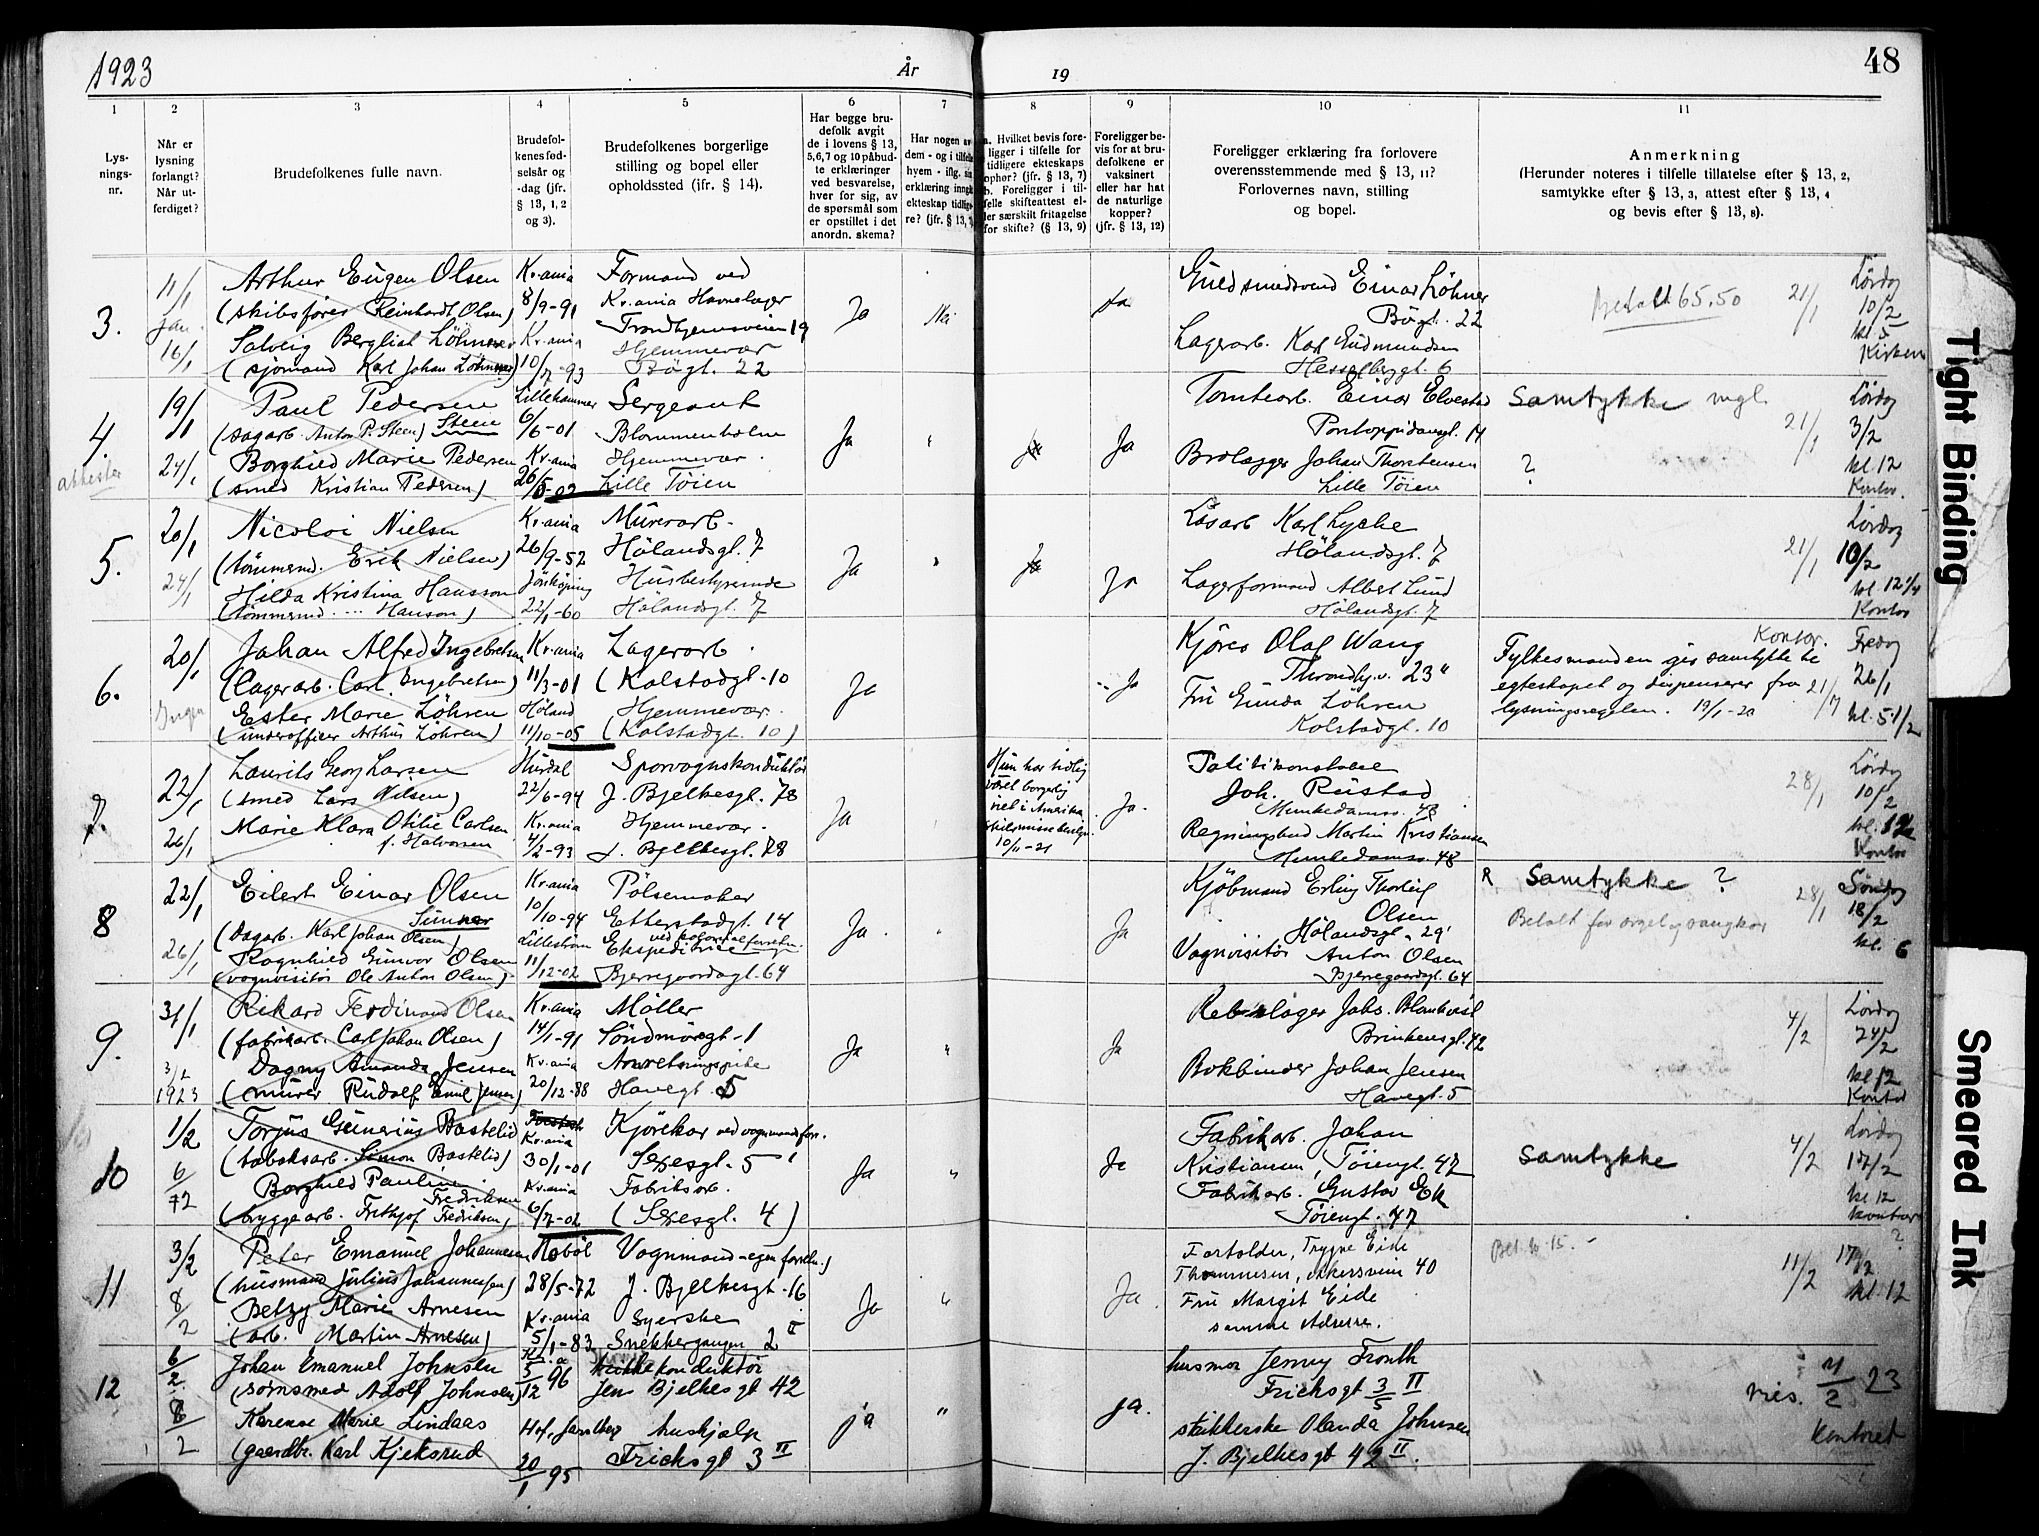 1923
År
19
48
1
2
3
4
5
6
7
8
9
10
11
Lys-
nings-
nr.
Når er
lysning
forlangt?
Når ut-
ferdiget?
Brudefolkenes fulle navn.
Brudefol-
kenes fød-
selsår og
-dag (jfr.
§ 13, 1, 2
og 3).
Brudefolkenes borgerlige
stilling og bopel eller
opholdssted (jfr. § 14).
Har begge bru-
defolk avgit
de i lovens § 13,
5,6,7 og 10 påbud-
te erklæringer
ved besvarelse,
hver for sig, av
de spørsmål som
er opstillet i det
anordn. skema?
Har nogen av
dem - og i tilfelle
hvem - iflg. sin
erklæring inngått
ekteskap tidlige-
re? (jfr. § 13,
a. Hvilket bevis fore-
ligger i tilfelle for
tidligere ekteskaps
ophør? (jfr. § 13, 7)
b. Foreligger i til-
felle skifteattest el-
ler særskilt fritagelse
for skifte? (§ 13, 9)
Foreligger be-
vis for at bru-
defolkene er
vaksinert
eller har hat
de naturlige
kopper?
(jfr. § 13, 12)
Foreligger erklæring fra forlovere
overensstemmende med § 13, 11?
Forlovernes navn, stilling
og bopel.
Anmerkning
(Herunder noteres i tilfelle tillatelse efter § 13, 2,
samtykke efter § 13, 3, attest efter § 13, 4
og bevis efter § 13, 8).
3.
11/1
Jan.
16/1
Arthur Eugen Olsen
(skibsfører Reinhardt Olsen)
Solveig Bergliot Löhner
(sjømand Karl Johan Löhner)
Kr.ania
8/9-91
Kr.ania
10/7-93
Formand ved
Kr.ania Havnelager
Trondhjemsveien 19
Hjemmevær
Bögt. 22
Ja
Nei
Ja
Guldsmedsvend Einar Löhner
Bögt. 22
Lagerarb. Karl Gudmundsen
Hesselbergt. 6
Betalt 65.50
21/1
Lördag
10/2
kl. 5
Kirken
4.
attester
19/1
24/1
Paul Pedersen
(sagarb. Anton P. Steen) Steen
Borghild Marie Pedersen
(smed Kristian Pedersen)
Lillehammer
6/6-01
Kr.ania
26/5-02
Sergeant
Blommenholm
Hjemmevær.
Lille Töien
Ja
Ja
Tomtearb. Einar Elvestad
Pontoppidansgt. 14
Brolægger Johan Thorstensen
Lille Töien
Samtykke mgl.
?
21/1
Lördag
3/2
kl. 12
Kontor.
5.
20/1
24/1
Nicolai Nielsen
(tömmermd. Erik Nielsen)
Hilda Kristina Hansson
(tömmermd. ... Hanson)
Kr.ania
26/9-52
Jönköping
22/1-60
Murerarb.
Hölandsgt. 7
Husbestyrerinde
Hölandsgt. 7
Ja
"
Ja
Ja
Løsarb Karl Lyche
Hölandsgt. 7
Lagerformand Albert Lund
Hölandsgt. 7
21/1
Lördag
10/2
kl. 12 1/4
Kontor
6.
20/1
Ingen
Johan Alfred Ingebretsen
(lagerarb. Carl Ingebretsen)
Ester Marie Löhren
(underofficer Arthur Löhren)
Kr.ania
11/3-01
Höland
11/10-05
Lagerarb.
(Kolstadgt. 10
Hjemmevær.
(Kolstadgt. 10)
Ja
Ja
Kjörer Olaf Wang
Throndhj.v. 23"
Fru Gunda Löhren
Kolstadgt. 10
Kontor.
Fylkesmanden gir samtykke til
egteskapet og dispenserer fra
lysningsregelen. 19/1-23
21/1
Fredag
26/1
kl. 5 1/2
7.
22/1
26/1
Laurits Georg Larsen
(smed Lars Nilsen)
Marie Klara Otilie Carlsen
f. Halvorsen
Hurdal
22/6-94
Kr.ania
4/2-93
Sporvognskonduktör
J. Bjelkesgt. 78
Hjemmevær.
J. Bjelkesgt. 78
Ja
Hun har tidlig
været borgerlig
viet i Amerika
Skilsmissebevilgn.
10/11-21
Ja.
Politikonstabel
Joh. Rustad
Munkedamsv. 48
Regningsbud Martin Kristiansen
Munkedamsv. 48
28/1
Lördag
10/2
kl. 12
Kontor
8
22/1
26/1
Eilert Einar Olsen
Sunner
(Dagarb. Karl Johan Olsen)
Ragnhild Gunvor Olsen
(vognvisitör Ole Anton Olsen)
Kr.ania
10/10-94
Lilleström
11/12-02
Pölsemaker
Etterstadgt. 14
ved kolonialforretn.
Ekspeditrice
Bjerregaardsgt. 64
Ja.
Ja
Kjöbmand Erling Thorleif
Olsen
Hölandsgt. 29'
Vognvisitör Anton Olsen
Bjerregaardsgt. 64
R
Samtykke ?
Betalt for orgel og sangkor
28/1
Søndag
18/2
kl. 6
9.
31/1
3/2
1923
Rikard Ferdinand Olsen
(fabrikarb. Carl Johan Olsen)
Dagny Amanda Jensen
(murer Rudolf Emil Jensen)
Kr.ania
14/1-91
Kr.ania
20/12-88
Möller
Söndmöregt. 1
Anretningspike
Havegt. 5
Ja
"
Ja
Rebslager Johs. Blomkvist
Brinkensgt. 42
Bokbinder Johan Jensen
Havegt. 5
4/2
Lördag
24/2
kl 12
Kontor
10
1/2
6/2
Torjus Gunerius Bastelid
(tobaksarb. Simon Bastelid)
Borghild Pauline
Fredriksen
(bryggearb. Frithjof Fredriksen)
Kr.ania
30/1-01
Kr.ania
6/7-02
Kjörekar ved vognmandsforr.
Sexesgt. 5
Fabriksarb.
(Sexesgt. 4)
Ja
"
Ja
Fabrikarb. Johan
Kristiansen, Töiengt. 47
Fabrikarb. Gustav Ek
Töiengt. 47
Samtykke
4/2
Lördag
17/2
kl 12
Kontor
?
11
3/2
8/2
Peter Emanuel Johannesen
(husmand Julius Johannesen)
Betzy Marie Arnesen
(arb. Martin Arnesen)
Hobøl
28/5-72
Kr.ania
5/1-83
Vognmand - egen forretn.)
J. Bjelkesgt. 16
Syerske
Snekkergangen 2 II
Ja
"
Ja.
Forfolder, Trygve Eide
Thommesen, Akersvein 40
Fru Margit Eide
samme Adresse.
Bet. kr. 15.-
11/2
17/2
kl. 12
12
6/2
8/2
Johan Emanuel Johnsen
(sörnsmed Adolf Johnsen)
Karense Marie Lindaas
(gaardbr. Karl Kjeksrud
Kr.a
5/12 96
Hof, Jarlsberg
20/1 95
trikkekonduktör
Jens Bjelkesgt 42
hushjælp
Fricksgt 3 II
ja
"
ja.
husmor Jenny Fronth
Fricksgt 3/5 II
strikkerske Olanda Johnsen
J. Bjelkesgt 42 II.
vies. 2 23
Kontoret
Tight Binding
Smeared Ink